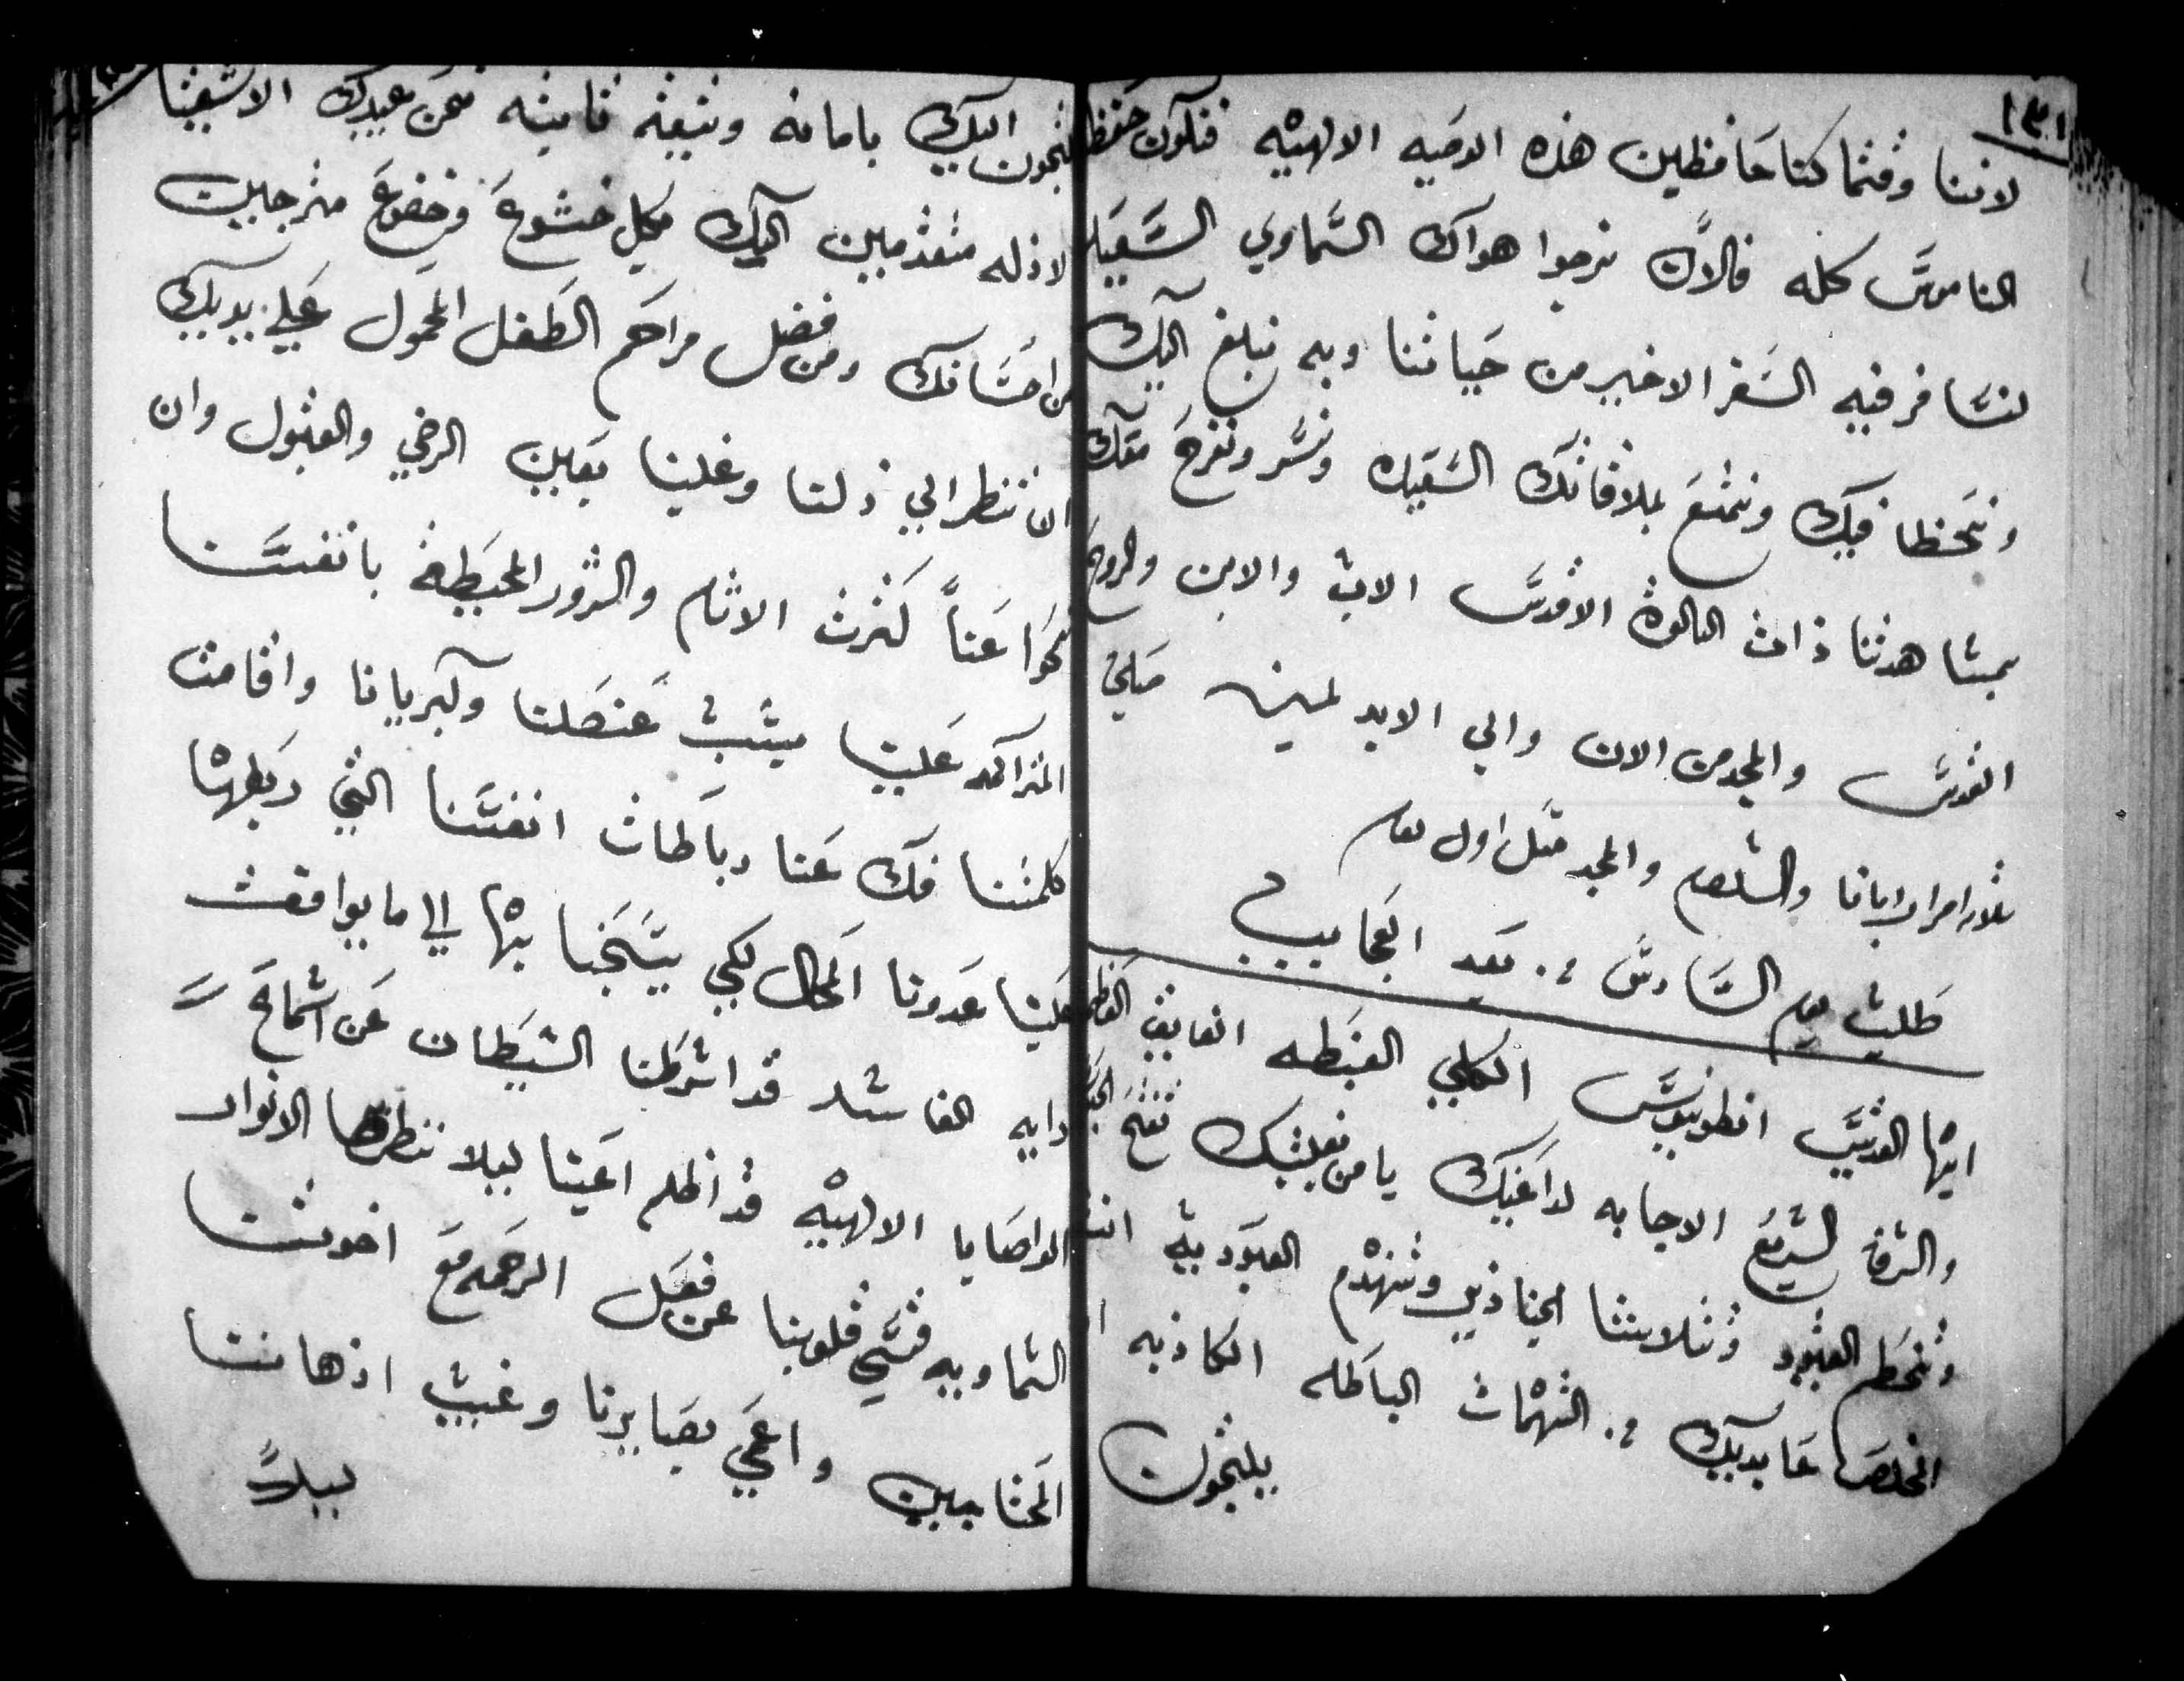 ١٣١
لاننا وقتما كنا حافظين هذه الوصيه الالهيه فنكون حفظنا
الناموس كله فالان نرجوا هواك السماوي السعيد
لنسافر فيه السفر الاخير من حياتنا وبه نبلغ اليك
ونحظا فيك ونتمتع بملاقاتك السعيده ونسر ونفرح معك
بمشاهدتنا ذات الثالوث الاقدس الاب والابن والروح
القدس والمجد من الان والي الابد امين
ثلاث امرار ابانا والسلام والمجد مثل اول يوم
طلبت يوم السادس بعد العجايب
ايها القديس انطونيوس الكلي الغبطه الفايق
والشرف السريع الاجابه لداعيك يا من بطلبتك تفتح
وتنحطم القيود وتتلاشا وتنهدم العبوديه انت
المخلص عابديك من التهمات الباطله الكاذبه
يلتجون
يلتجون اليك بامانه وبثقة ثابته نحن عبيدك الاشقيا
الاذله متقدمين اليك بكل خشوع وخضوع مترجيين
من احسانك ومن فضل مراحم الطفل المحمول علي يديك
ان تنظر الي ذلنا وغلبنا بعين الرضي والقبول وان
تمحوا عنا كثرت الاثام والشرور المحيطة بانفسنا
المتراكمه علينا بسبب عنصلنا وكبريانا واقامت
كلمتنا فك عنا رباطات انفسنا التي ربطها
علينا عدونا المحال لكي يتسخبنا بها الي ما يوافقت
رايه الفاسد قد اشرطنا الشيطان عن اسماع
الواصايا الالهيه قد اظلم اعيننا ليلا تنظر الانوار
السماويه قسي قلوبنا عن فعل الرحمه مع اخوتنا
المحتاجين واعمي بصايرنا وغيب اذهاننا
ليلا